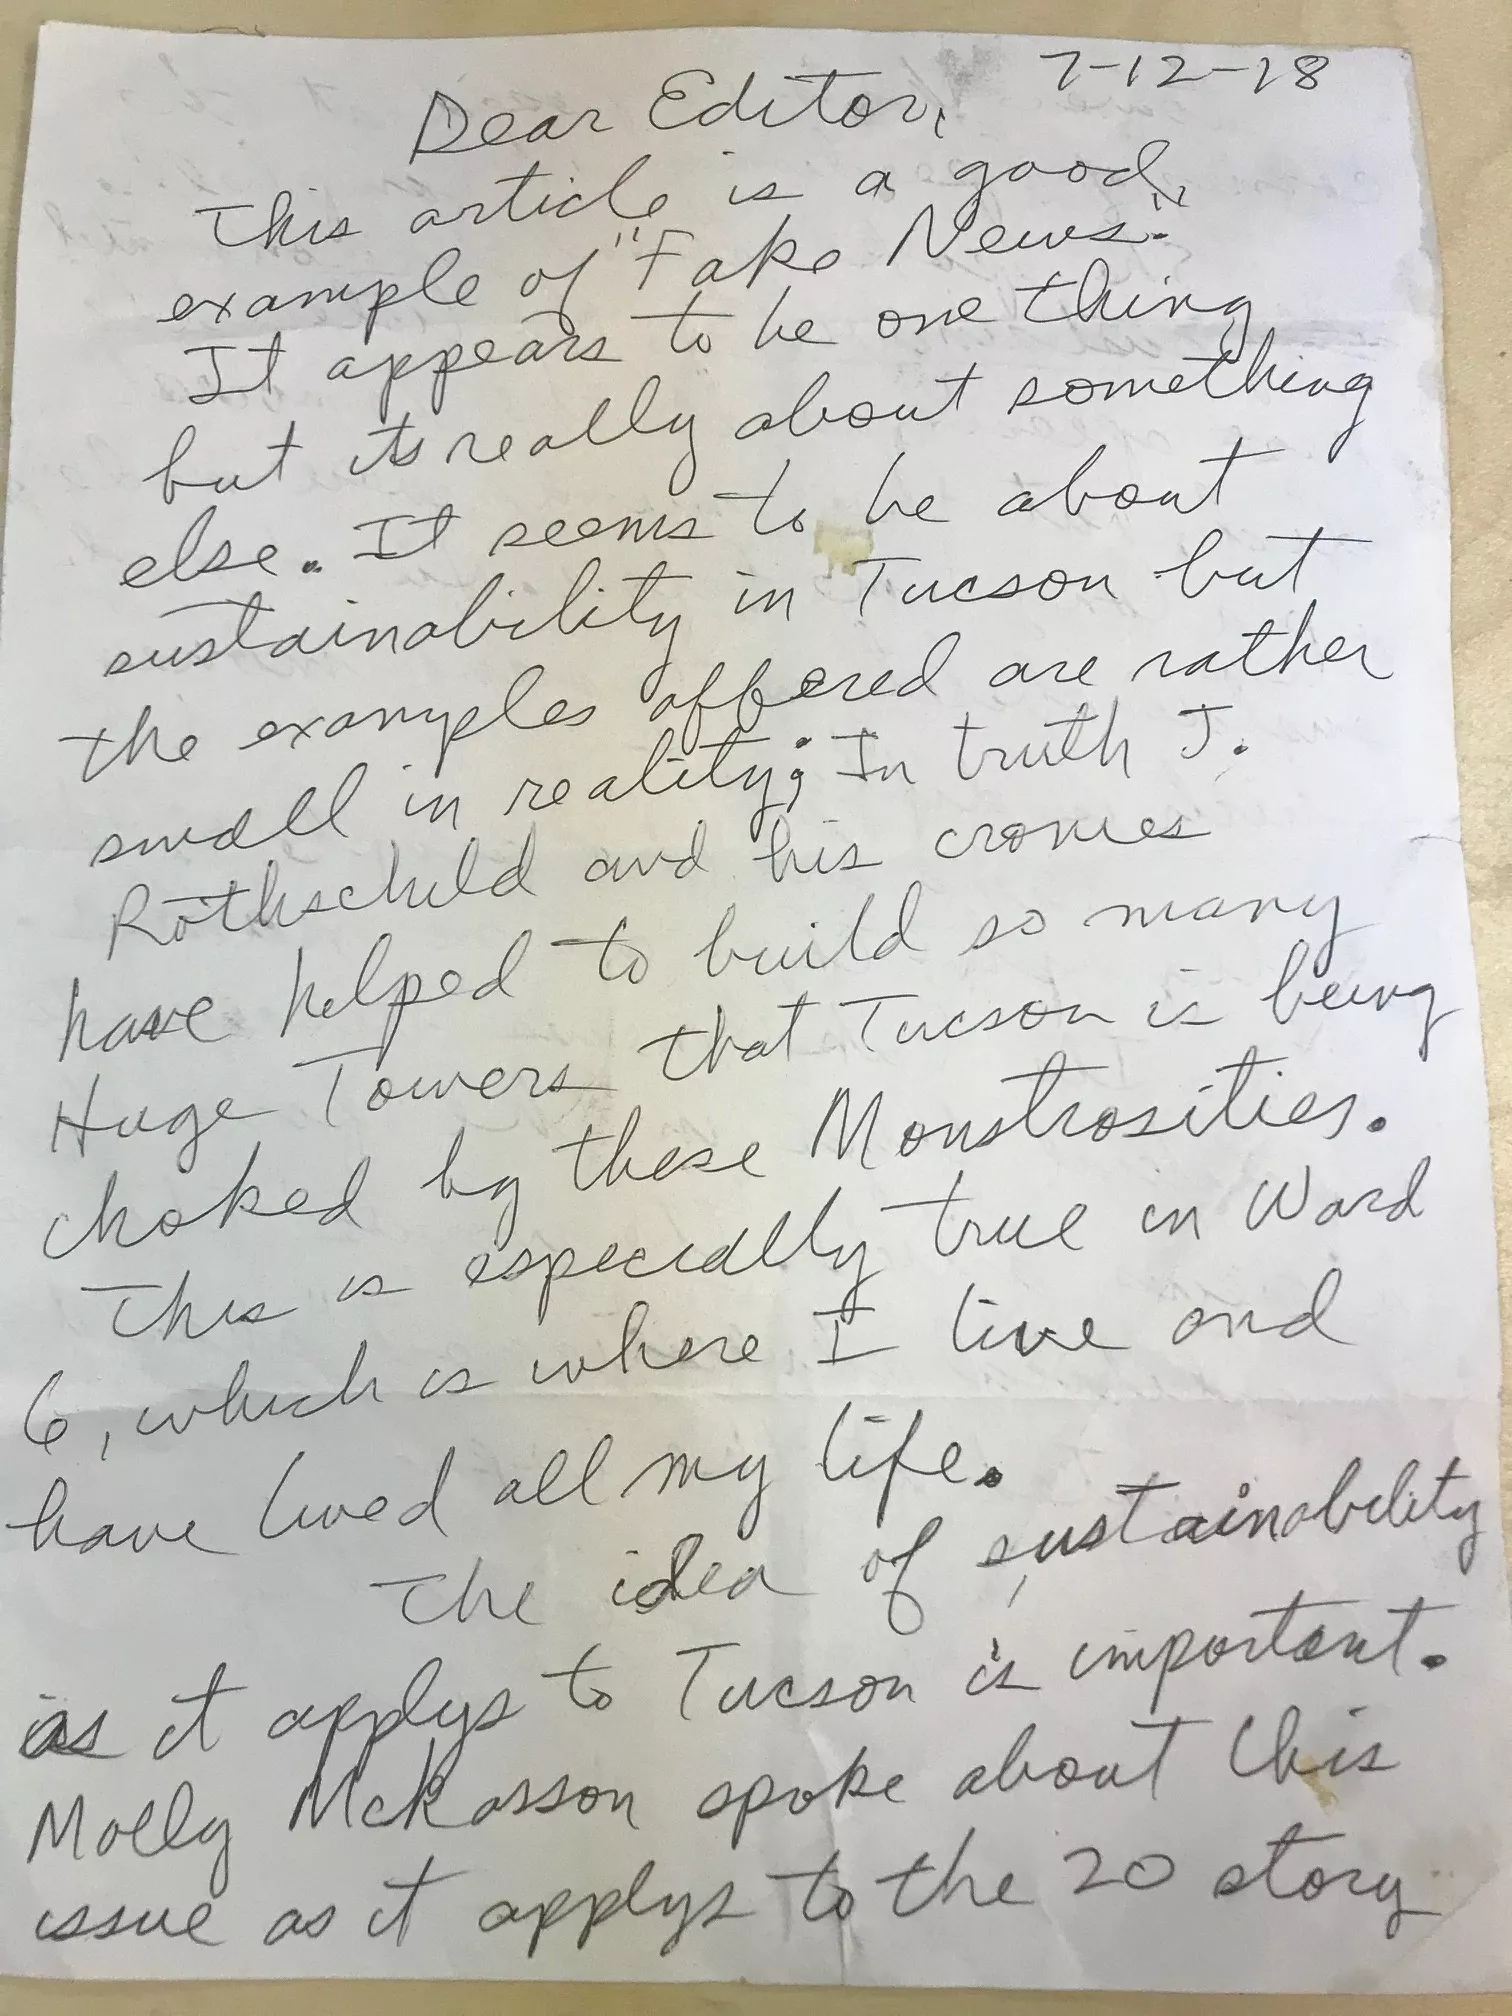 7-12-18
Dear Editor,
This article is a good
example of "Fake News."
It appears to be one thing
but its really about something
else. It seems to be about
sustainability in Tucson but
the examples offered are rather
small in reality; In truth J.
Rothschild and his cronies
have helped to build so many
Huge Towers that Tucson is being
choked by these Monstrosities.
This is especially true in Ward
6, which is where I live and
have lived all my life.
The idea of sustainability
as it applys to Tucson is important.
Molly McKasson spoke about this
issue as it applys to the 20 story